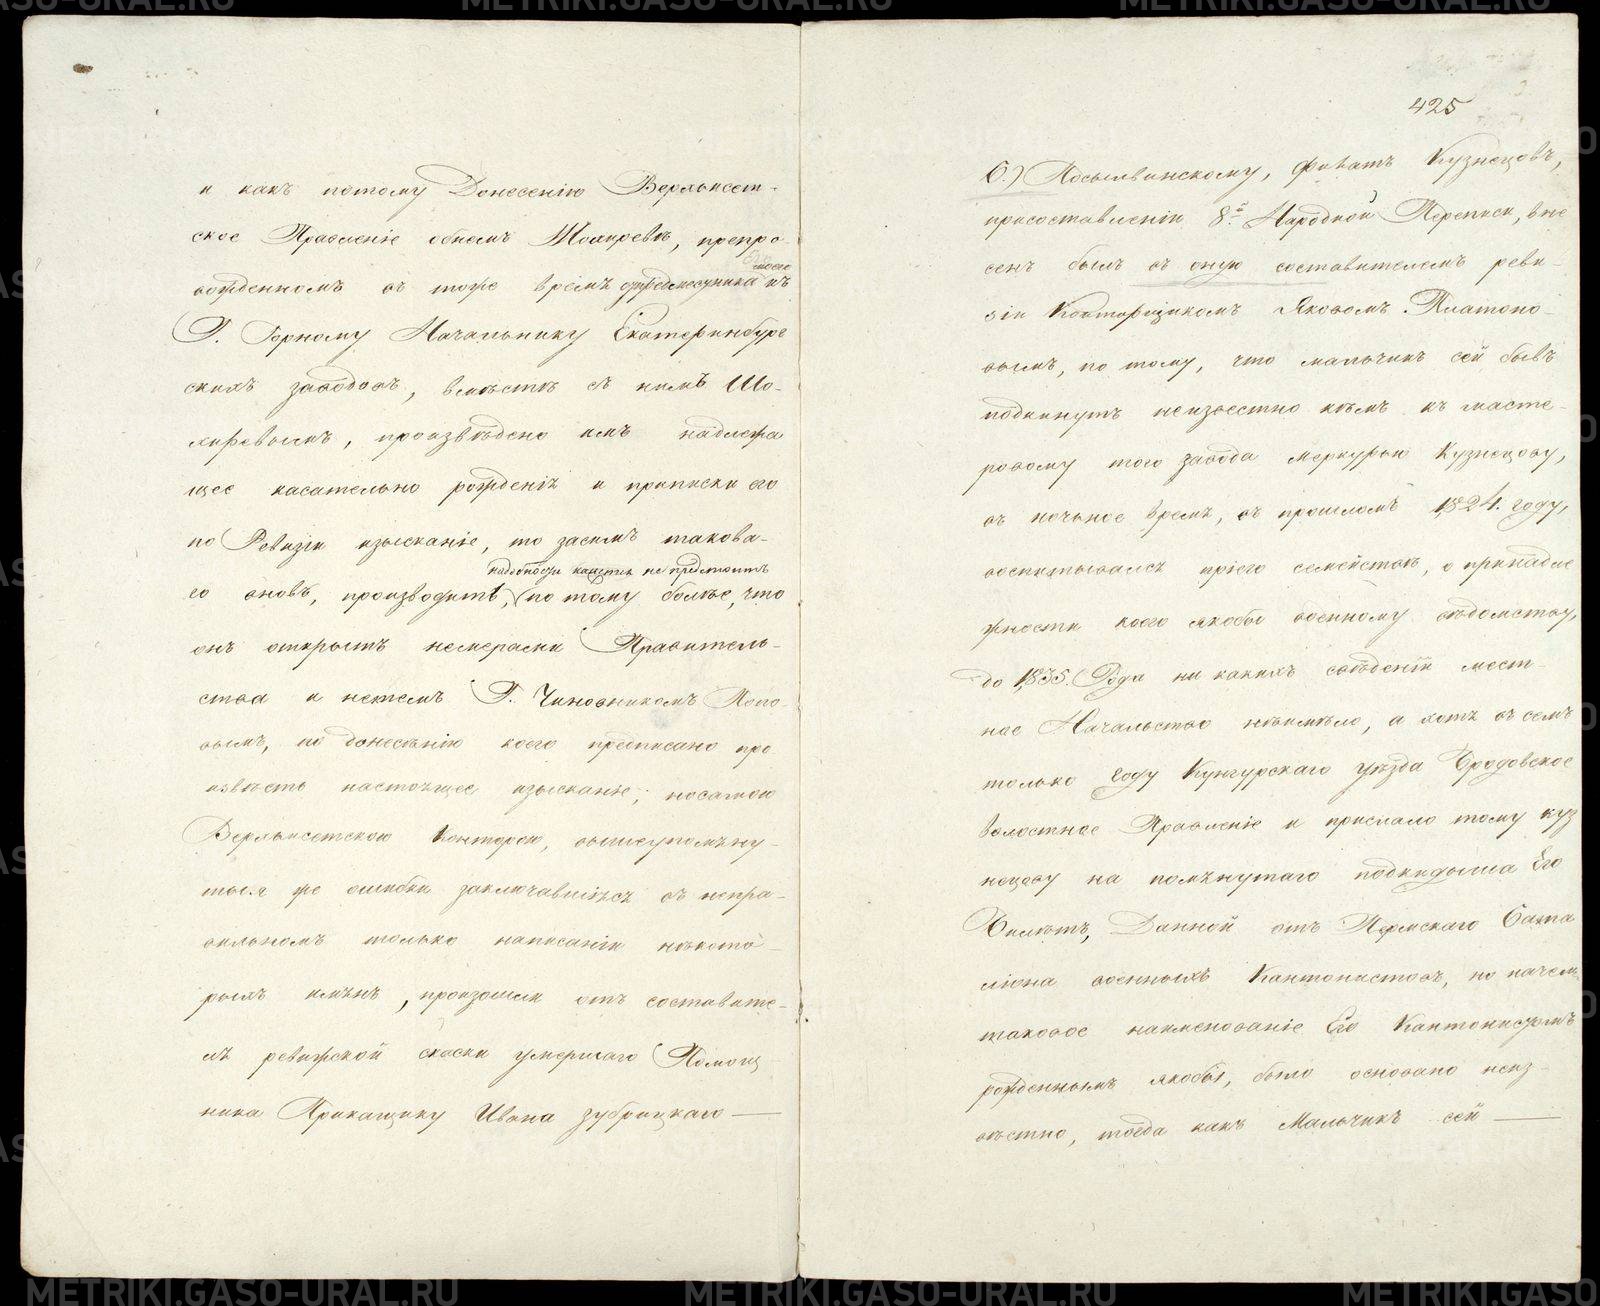 и какъ потому Донесенію Верхъисет-
ское Правленіе обнемъ Шолиревѣ, препро-
вожденномъ въ тоже время отъ предместника моего къ
Г. Горному Начальнику Екатеринбург
скихъ заводовъ, вместѣ съ нимъ Шо-
лиревымъ, произвѣдено имъ надлежа
щее касательно рожденія и приписки его
по Ревизіи изысканіе, то засимъ такова-
го вновь, производить, надобности кажется не предстоитъ (по тому болѣе, что
онъ открытъ немерами Правитель-
ства и нетемъ Г. Чиновникомъ Попо-
вымъ, по донесѣнію коего предписано про
извѣсть настоящее изысканіе; носамою
Верхъисетскою Конторою, вышеупомяну-
тыя же ошибки заключавшіяся въ непра-
вильномъ только написаніи нѣкото-
рыхъ имянъ, произошли отъ составите-
ля ревижской скаски умершаго Помощ
ника Прикащику Ивана Зубрицкаго —
425
6.) Посылвинскому, Фиватъ Кузнецовъ,
присоставленіи 8й Народной Переписи, вне
сенъ былъ въ оную составителемъ реви-
зіи Конторщикомъ Яковомъ Платоно-
вымъ, по тому, что мальчикъ сей бывъ
подкинутъ неизвестно кѣмъ къ масте-
ровому того завода Меркурью Кузнецову,
въ ночьное время, въ прошломъ 1824. году,
воспитывался вего семействѣ, о принадле
жности коего якобы военному вѣдомству,
до 1835. Года ни какихъ свѣденій мест-
ное Начальство неимѣло, а хотя въ семъ
только году Кунгурскаго уѣзда Бродовское
волостное Правленіе и прислало тому Куз
нецову на помянутаго подкидыша Его
Билетъ, Данной отъ Пермскаго Бата
ліона военныхъ Кантонистовъ, но на чемъ
таковое наименованіе Его Кантонистомъ
рожденнымъ якобы, было основано неиз-
вѣстно, тогда какъ Мальчикъ сей —
METRIKI.GASO-URAL.RU